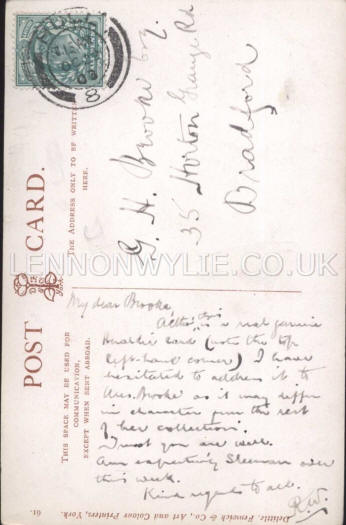 G. H. Brooke Esq.
35 Horton Grange Rd
Bradford
POST CARD.
THE ADDRESS ONLY TO BE WRITTEN
HERE.
THIS SPACE MAY BE USED FOR
COMMUNICATION,
EXCEPT WHEN SENT ABROAD.
HALF PENNY
LENNONWYLIE.CO.UK
My dear Brooke
Altho' this is a real genuine
card (note the top
left-hand corner) I have
hesitated to address it to
Mrs. Brooke as it may differ
in character from the rest
of her collection.
Trust you are well.
Am expecting over
this week.
Kind regards to all.
R.W.
Delittle, Fenwick & Co., Art and Colour Printers, York.
61.